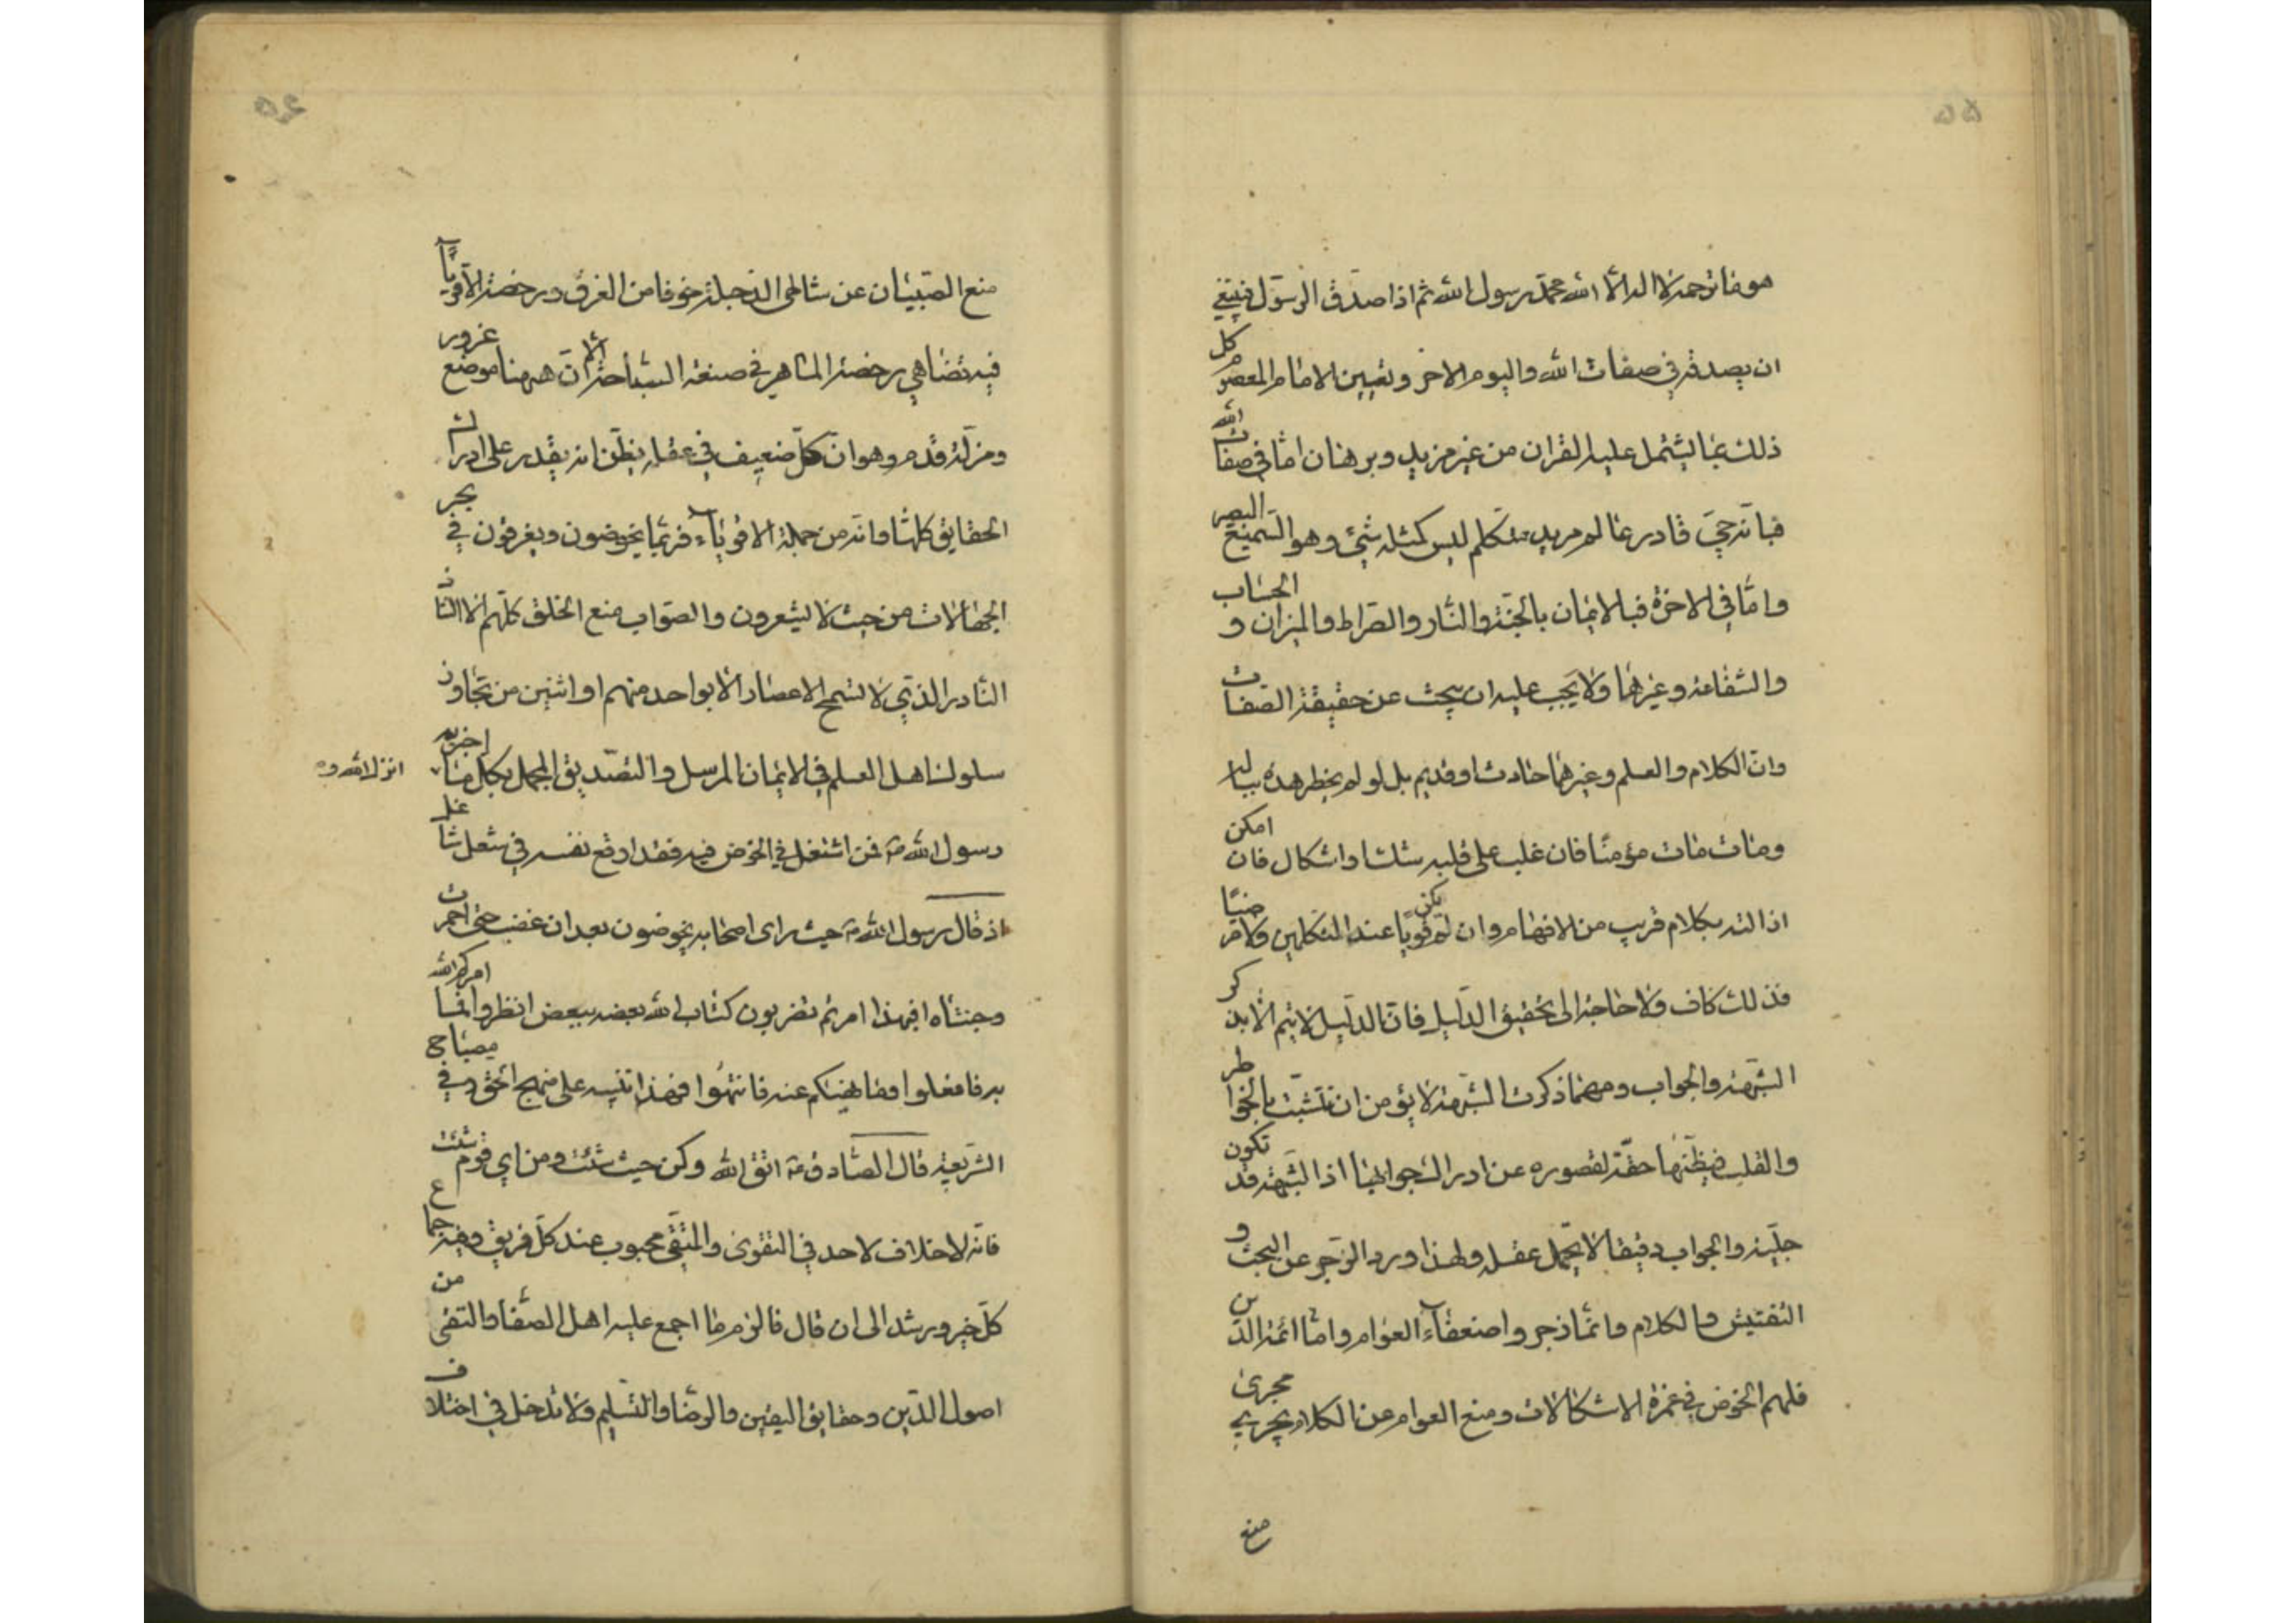 هو ما ترجمه لا اله الا الله محمد رسول الله ثم اذا صدق الرسول فينبغي
ان يصدقه في صفات الله واليوم الاخر وتعيين الامام المعصوم كل
ذلك بما يشتمل عليه القران من غير مزيد وبرهان اما في صفات الله
فبانه حي قادر عالم مريد متكلم ليس كمثله شئ وهو السميع البصير
واما في الاخرة فبالايمان بالجنة والنار والصراط والميزان والحساب
والشفاعة وغيرها ولا يجب عليه ان يبحث عن حقيقة الصفات
وان الكلام والعلم وغيرهما حادث او قديم بل لو لم يخطر هذه بباله
ومات مات مؤمنا فان غلب على قلبه شك او اشكال فان امكن
ازالته بكلام قريب من الافهام وان لم يكن قويا عند المتكلمين ولا مرضيا
فذلك كاف ولا حاجة الى تحقيق الدليل فان الدليل لا يتم الا بذكر
الشبهة والجواب ومهما ذكرت الشبهة لا يؤمن ان تتشبث بالخواطر
والقلب فيظنها حقة لقصوره عن ادراك جوابها اذ الشبهة قد تكون
جلية والجواب دقيقا لا يحتمل عقله ولهذا ورد الزجر عن البحث و
التفتيش والكلام وانما زجروا ضعفاء العوام واما ائمة الدين
فلهم الخوض في غمرة الاشكالات ومنع العوام عن الكلام يجري مجرى
منع
منع الصبيان عن شاطئ الدجلة خوفا من الغرق ورخصة الاقوياء
فيه تضاهي رخصة الماهر في صنعة السباحة الا ان ههنا موضع غرور
ومزلة قدم وهو ان كل ضعيف في عقله يظن انه يقدر على ادراك
الحقايق كلها وانه من جملة الاقوياء فربما يخوضون ويغرقون في بحر
الجهالات من حيث لا يشعرون والصواب منع الخلق كلهم الا الشاذ
النادر الذي لا تسمح الاعصار الا بواحد منهم او اثنين من تجاوز
سلوك اهل العلم في الايمان المرسل والتصديق المجمل بكل ما اخبر به
انزل الله و
رسول الله ص فمن اشتغل في الخوض فيه فقد اوقع نفسه في شغل شاغل
اذ قال رسول الله ص حيث راى اصحابه يخوضون بعد ان غضب حتى احمرت
وجنتاه افبهذا امرتم تضربون كتاب الله بعضه ببعض انظروا فما امركم الله
به فافعلوا وما نهيكم عنه فانتهوا فهذا تنبيه على منهج الحق وفي مصباح
الشريعة قال الصادق ع اتق الله وكن حيث شئت ومن اي قوم شئت
فانه لا خلاف لاحد في التقوى والمتقي محبوب عند كل فريق وفيه جماع
كل خير ورشد الى ان قال فالزم ما اجمع عليه اهل الصفا والتقى من
اصول الدين وحقايق اليقين والرضا والتسليم ولا تدخل في اختلاف